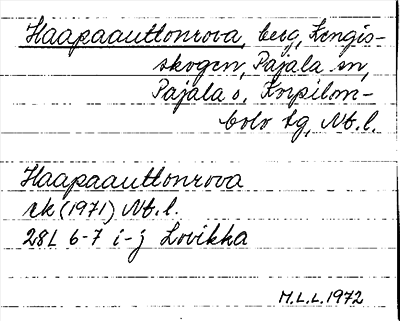 Haapaauttonrova, berg, Kengis-
skogen, Pajala sn,
Pajala o. Korpilom-
bolo tg, Nb. l.
Haapaauttonrova
rk (1971) Nb. l.
28L 6-7 i-j Lovikka
M.L.L. 1972